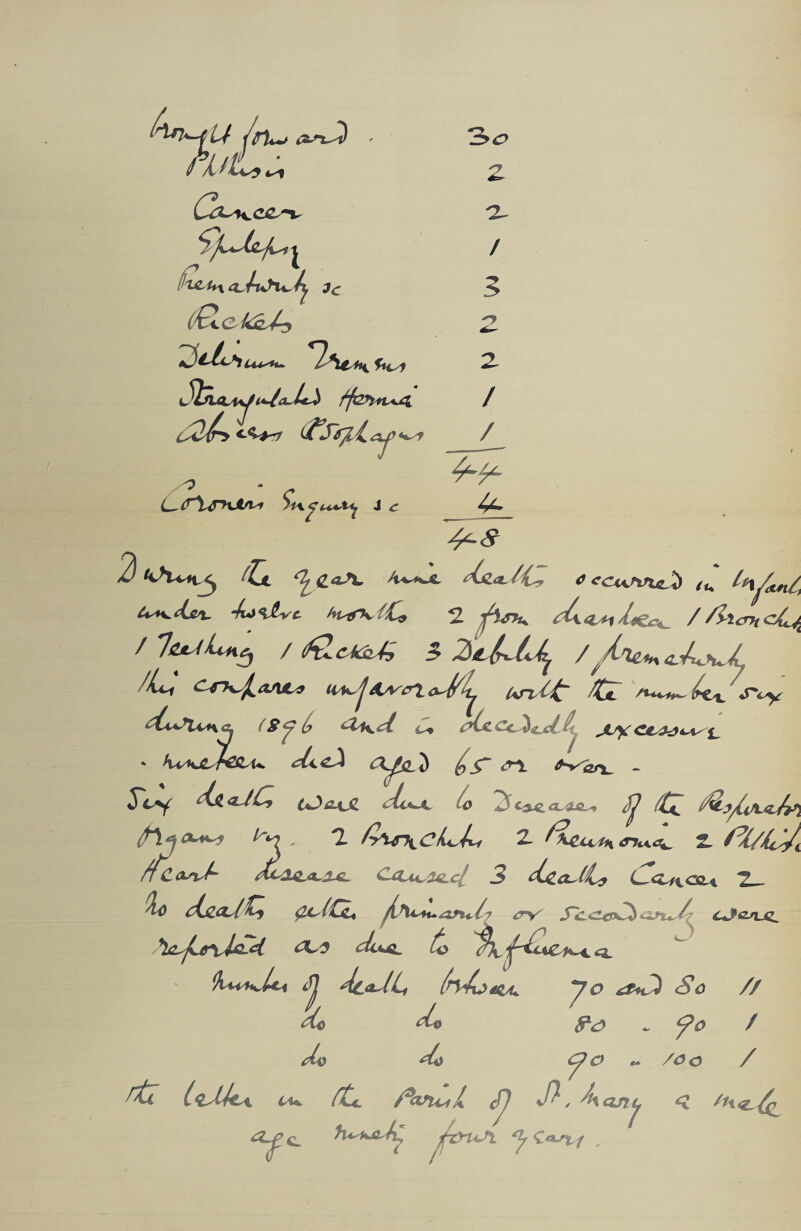 Brought forward 30
Phthisis 2
Cancer 2
Epilepsy 1
Prematurity &c 3
Rickets 2
Delirium Tremens 2
Strangulated Hernia 1
Abscess Œsophagus 1
44
Coroners Inquiry &c 4
48
During the year nine deaths occurred in Infants
under twelve months 2 from diarrhoea 1 Bronchitis
1 Teething 1 Rickets 3 Debility 1 prematurity
this compares unfavorably with the number six
during 1896 and is decidedly excessive
. nineteen died aged 65 or over -
Six deaths were due to Diseases of the Respiratory
Organs viz. 2 Bronchitis 2 Pneumonia 2 Phthisis
Heart disease caused 3 deaths Cancer 2
No deaths either primarily or secondarily were
reported as due to Influenza
Number of deaths between 70 and 80 11
do do 80 - 90 1
do do 90 - 100 1
the latter in the Parish of St. Mary a male
age ninety four years .